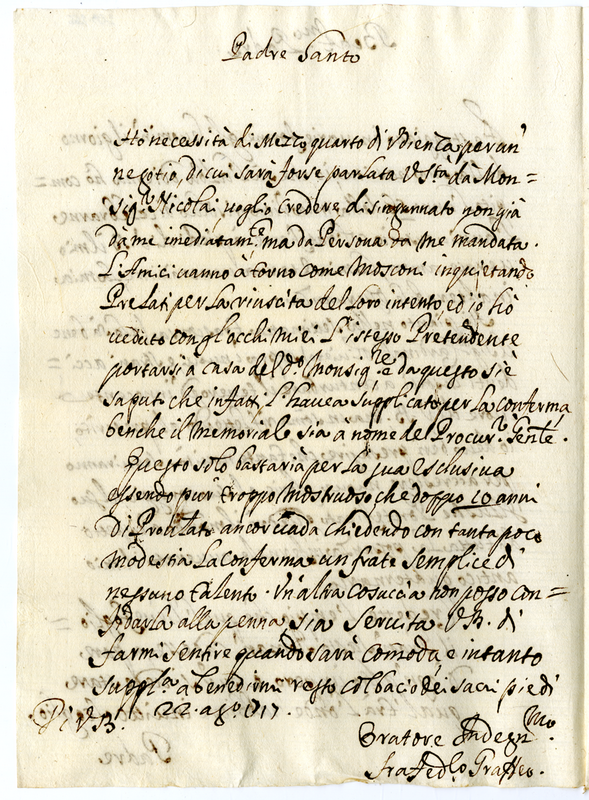 Padre Santo
Hò necessità di Mezzo quarto di Vdienza per un'
negotio, di cui sarà forse parlata V. Stà dà Mon=
sigr. Nicolai, voglio credere disingannato non già
dà me imediatamte. ma da Persona da me mandata.
L'Amici vanno à torno come Mosconi inquietando
Prelati per la riuscita del loro intento, ed io hò
veduto con gl'occhi miei l'istesso Pretendente
portarsi à casa del do. Monsigre. e da questo si è
saputo che in fatti l'havea supplicato per la conferma,
benche il Memoriale sia à nome del Procurr. Gente.
Questo solo bastaria per la sua esclusiva
essendo pur troppo mostruoso, che doppo 20 anni
Di Procilato ancor vada chiedendo con tanta poca
modestia la Conferma un frate semplice di
nessuno talento. Un'altra cosuccia non posso con=
fidarla alla penna, sia servita V.B. di
farmi sentire quando sarà comoda, e intanto
suppla. a benedirmi resto col bacio dei sacri piedi
Di V.B. 22. ago. 717.
Oratore Indegnmo.
fra Fedlo. Graffeo.